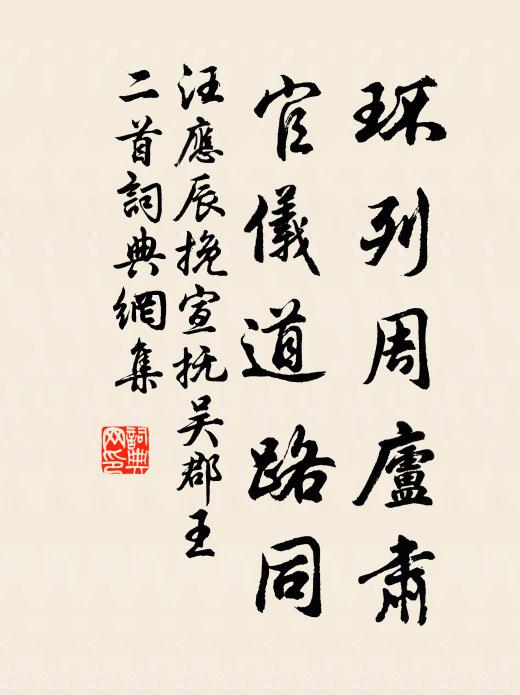 环列周廬肅
官儀道路同
汪應辰挽宣抚吴郡王
二首詞典網集
詞典网印